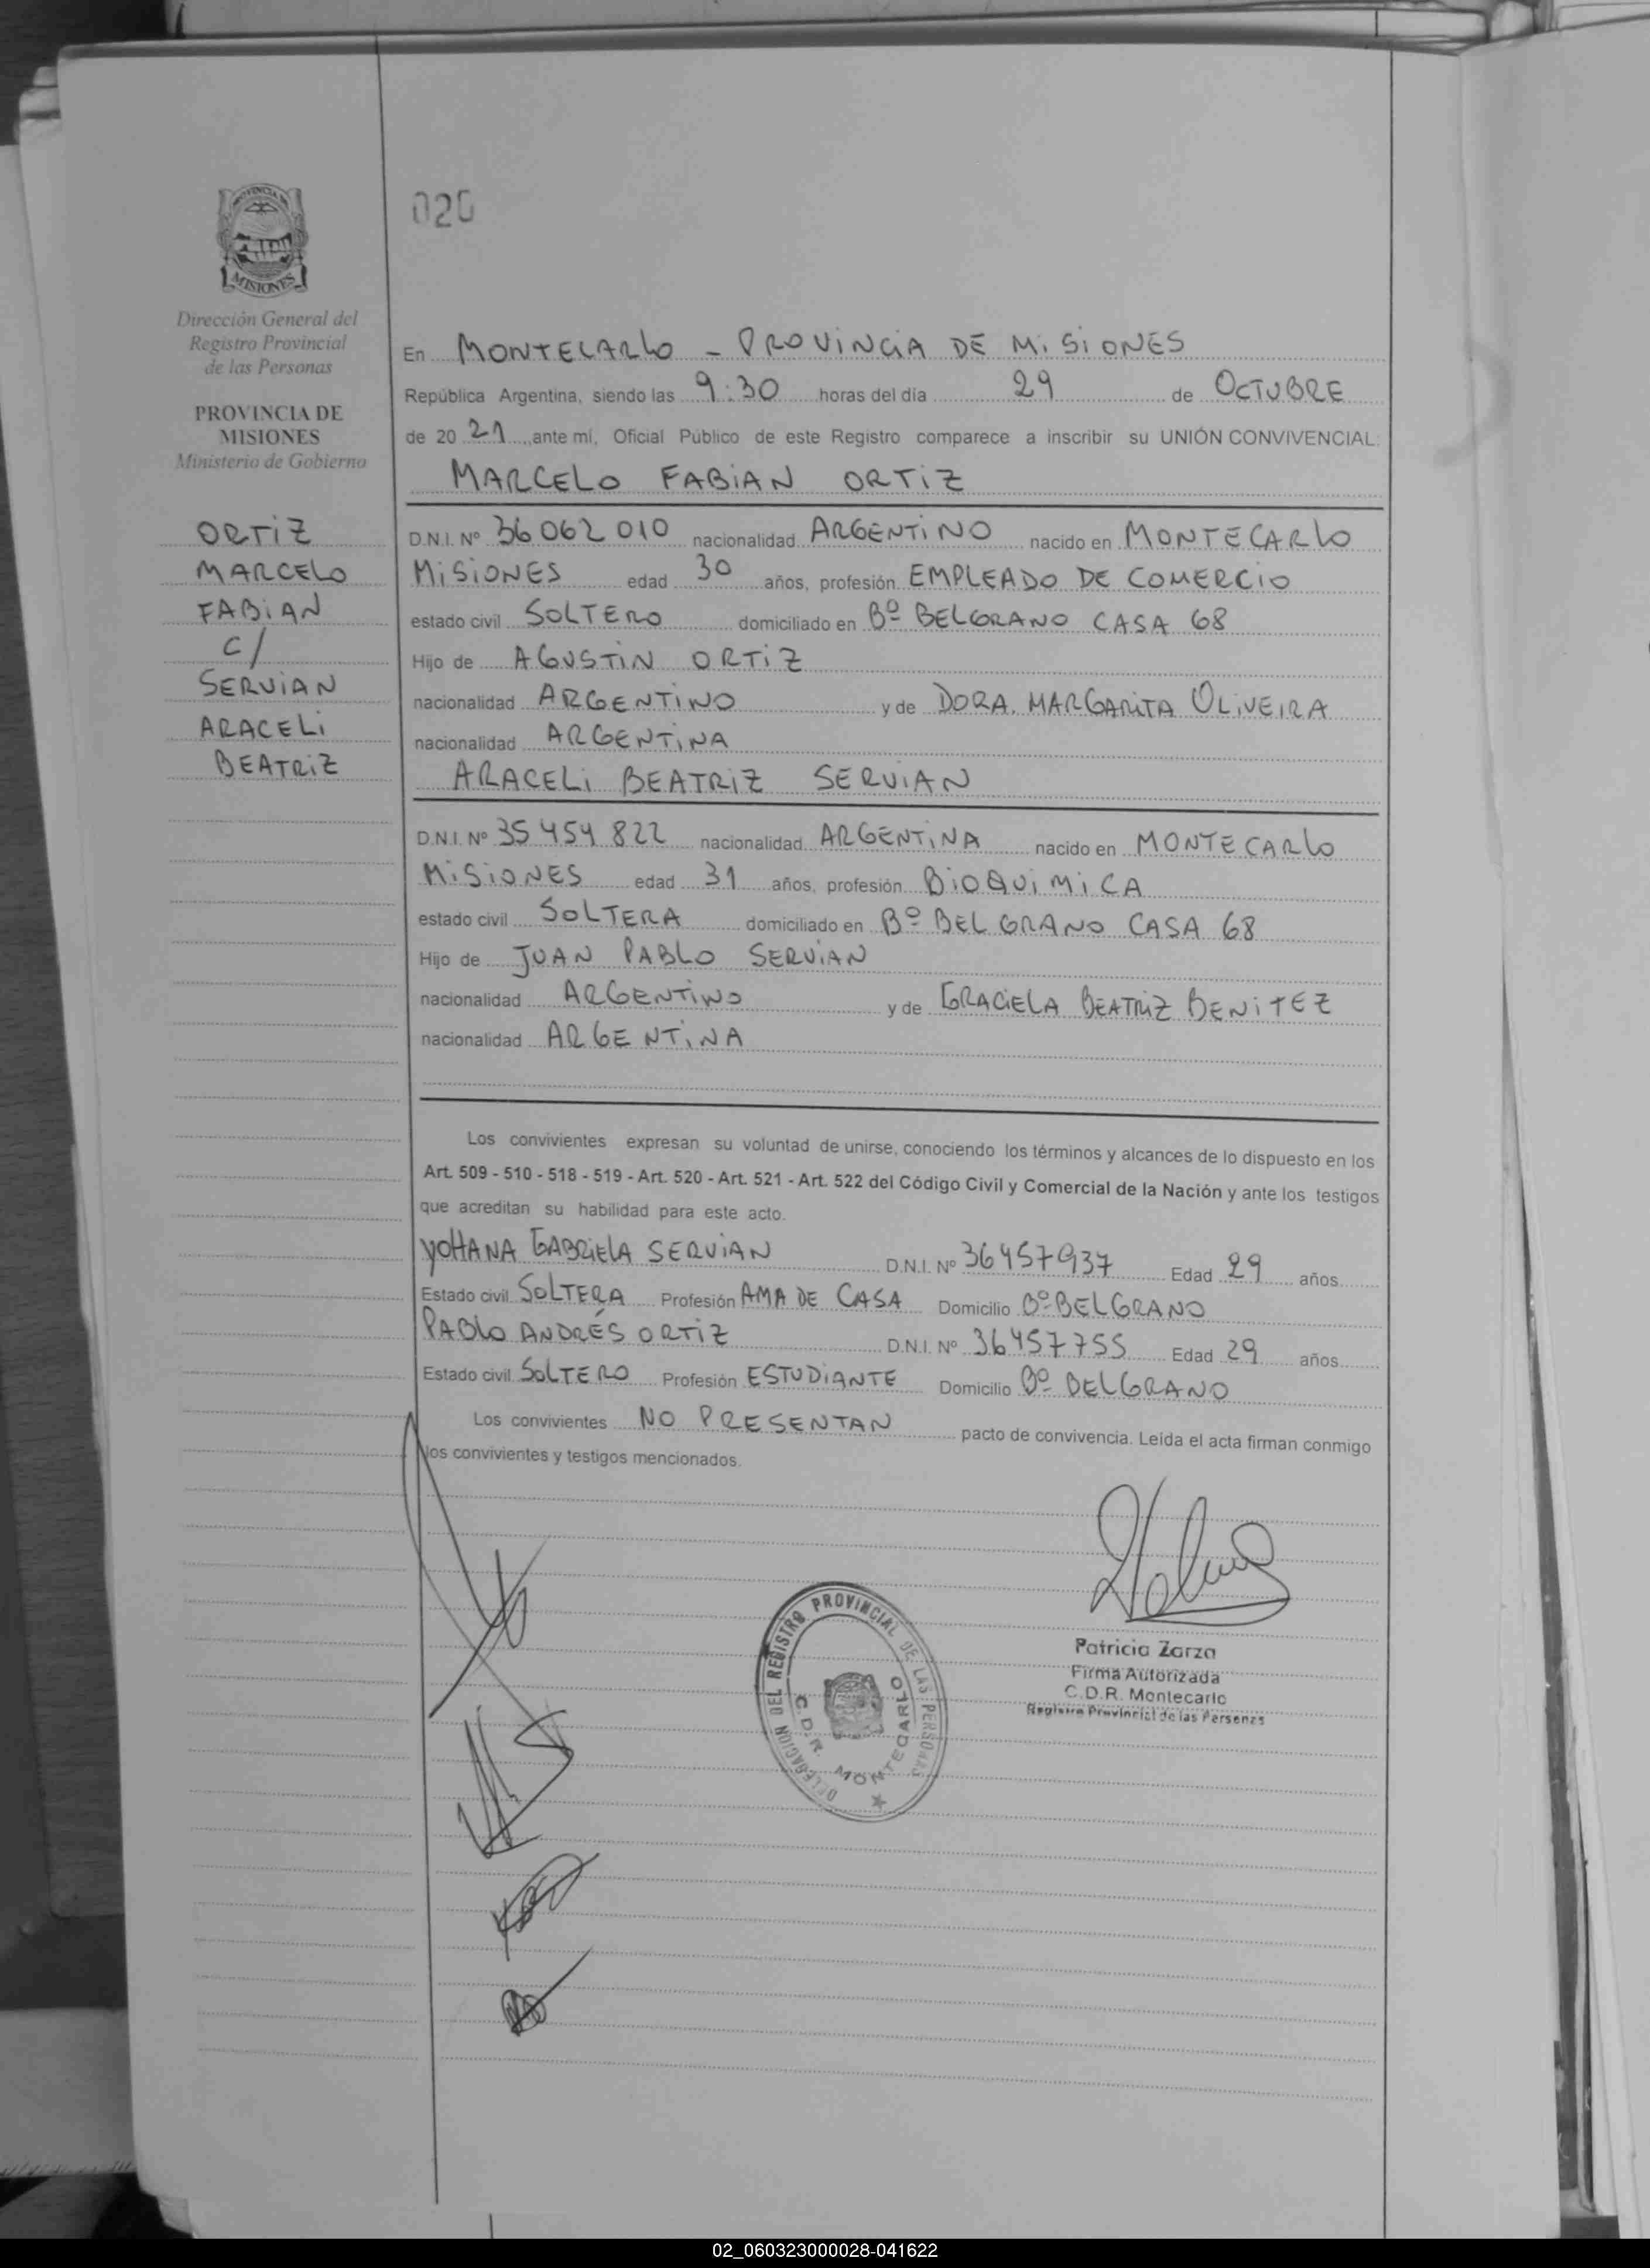 020
PROVINCIA DE
MISIONES
Dirección General del
Registro Provincial
de las Personas
PROVINCIA DE
MISIONES
Ministerio de Gobierno
ORTIZ
MARCELO
FABIAN
C/
SERVIAN
ARACELI
BEATRIZ
En MONTECARLO - PROVINCIA DE MISIONES
República Argentina, siendo las 9:30 horas del día 29 de OCTUBRE
de 20 21, ante mí, Oficial Público de este Registro comparece a inscribir su UNIÓN CONVIVENCIAL:
MARCELO FABIAN ORTIZ
D.N.I. Nº 36 062 010 nacionalidad ARGENTINO nacido en MONTECARLO
MISIONES edad 30 años, profesión EMPLEADO DE COMERCIO
estado civil SOLTERO domiciliado en Bº BELGRANO CASA 68
Hijo de AGUSTIN ORTIZ
nacionalidad ARGENTINO y de DORA MARGARITA OLIVEIRA
nacionalidad ARGENTINA
ARACELI BEATRIZ SERVIAN
D.N.I. Nº 35 454 822 nacionalidad ARGENTINA nacido en MONTECARLO
MISIONES edad 31 años, profesión BIOQUIMICA
estado civil SOLTERA domiciliado en Bº BELGRANO CASA 68
Hijo de JUAN PABLO SERVIAN
nacionalidad ARGENTINO y de GRACIELA BEATRIZ BENITEZ
nacionalidad ARGENTINA
Los convivientes expresan su voluntad de unirse, conociendo los términos y alcances de lo dispuesto en los
Art. 509 - 510 - 518 - 519 - Art. 520 - Art. 521 - Art. 522 del Código Civil y Comercial de la Nación y ante los testigos
que acreditan su habilidad para este acto.
YOHANA GABRIELA SERVIAN D.N.I. Nº 36457937 Edad 29 años
Estado civil SOLTERA Profesión AMA DE CASA Domicilio Bº BELGRANO
PABLO ANDRÉS ORTIZ D.N.I. Nº 36457755 Edad 29 años
Estado civil SOLTERO Profesión ESTUDIANTE Domicilio Bº BELGRANO
Los convivientes NO PRESENTAN pacto de convivencia. Leída el acta firman conmigo
los convivientes y testigos mencionados.
DELEGACION DEL REGISTRO PROVINCIAL DE LAS PERSONAS
C.D.R. MONTECARLO
Patricia Zarza
Firma Autorizada
C.D.R. Montecarlo
Registro Provincial de las Personas
02_060323000028-041622